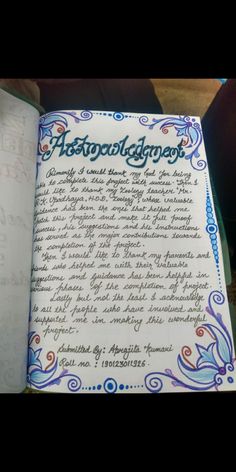 Acknowledgement
Primarily I would thank my God for being
able to complete this project with success. Then I
would like to thank my Zoology teacher "Mr.
Upadhyay, H.O.D., Zoology", whose valuable
guidance had been the ones that helped me
patch this project and make it full proof
success, his suggestions and his instructions
has served as the major contributions towards
the completion of the project.
Then I would like to thank my parents and
friends who helped me with their valuable
suggestions and guidance has been helpful in
various phases of the completion of project.
Lastly but not the least I acknowledge
to all the people who have involved and
supported me in making this wonderful
project.
Submitted By: Kumari
Roll no.: 190123011926.